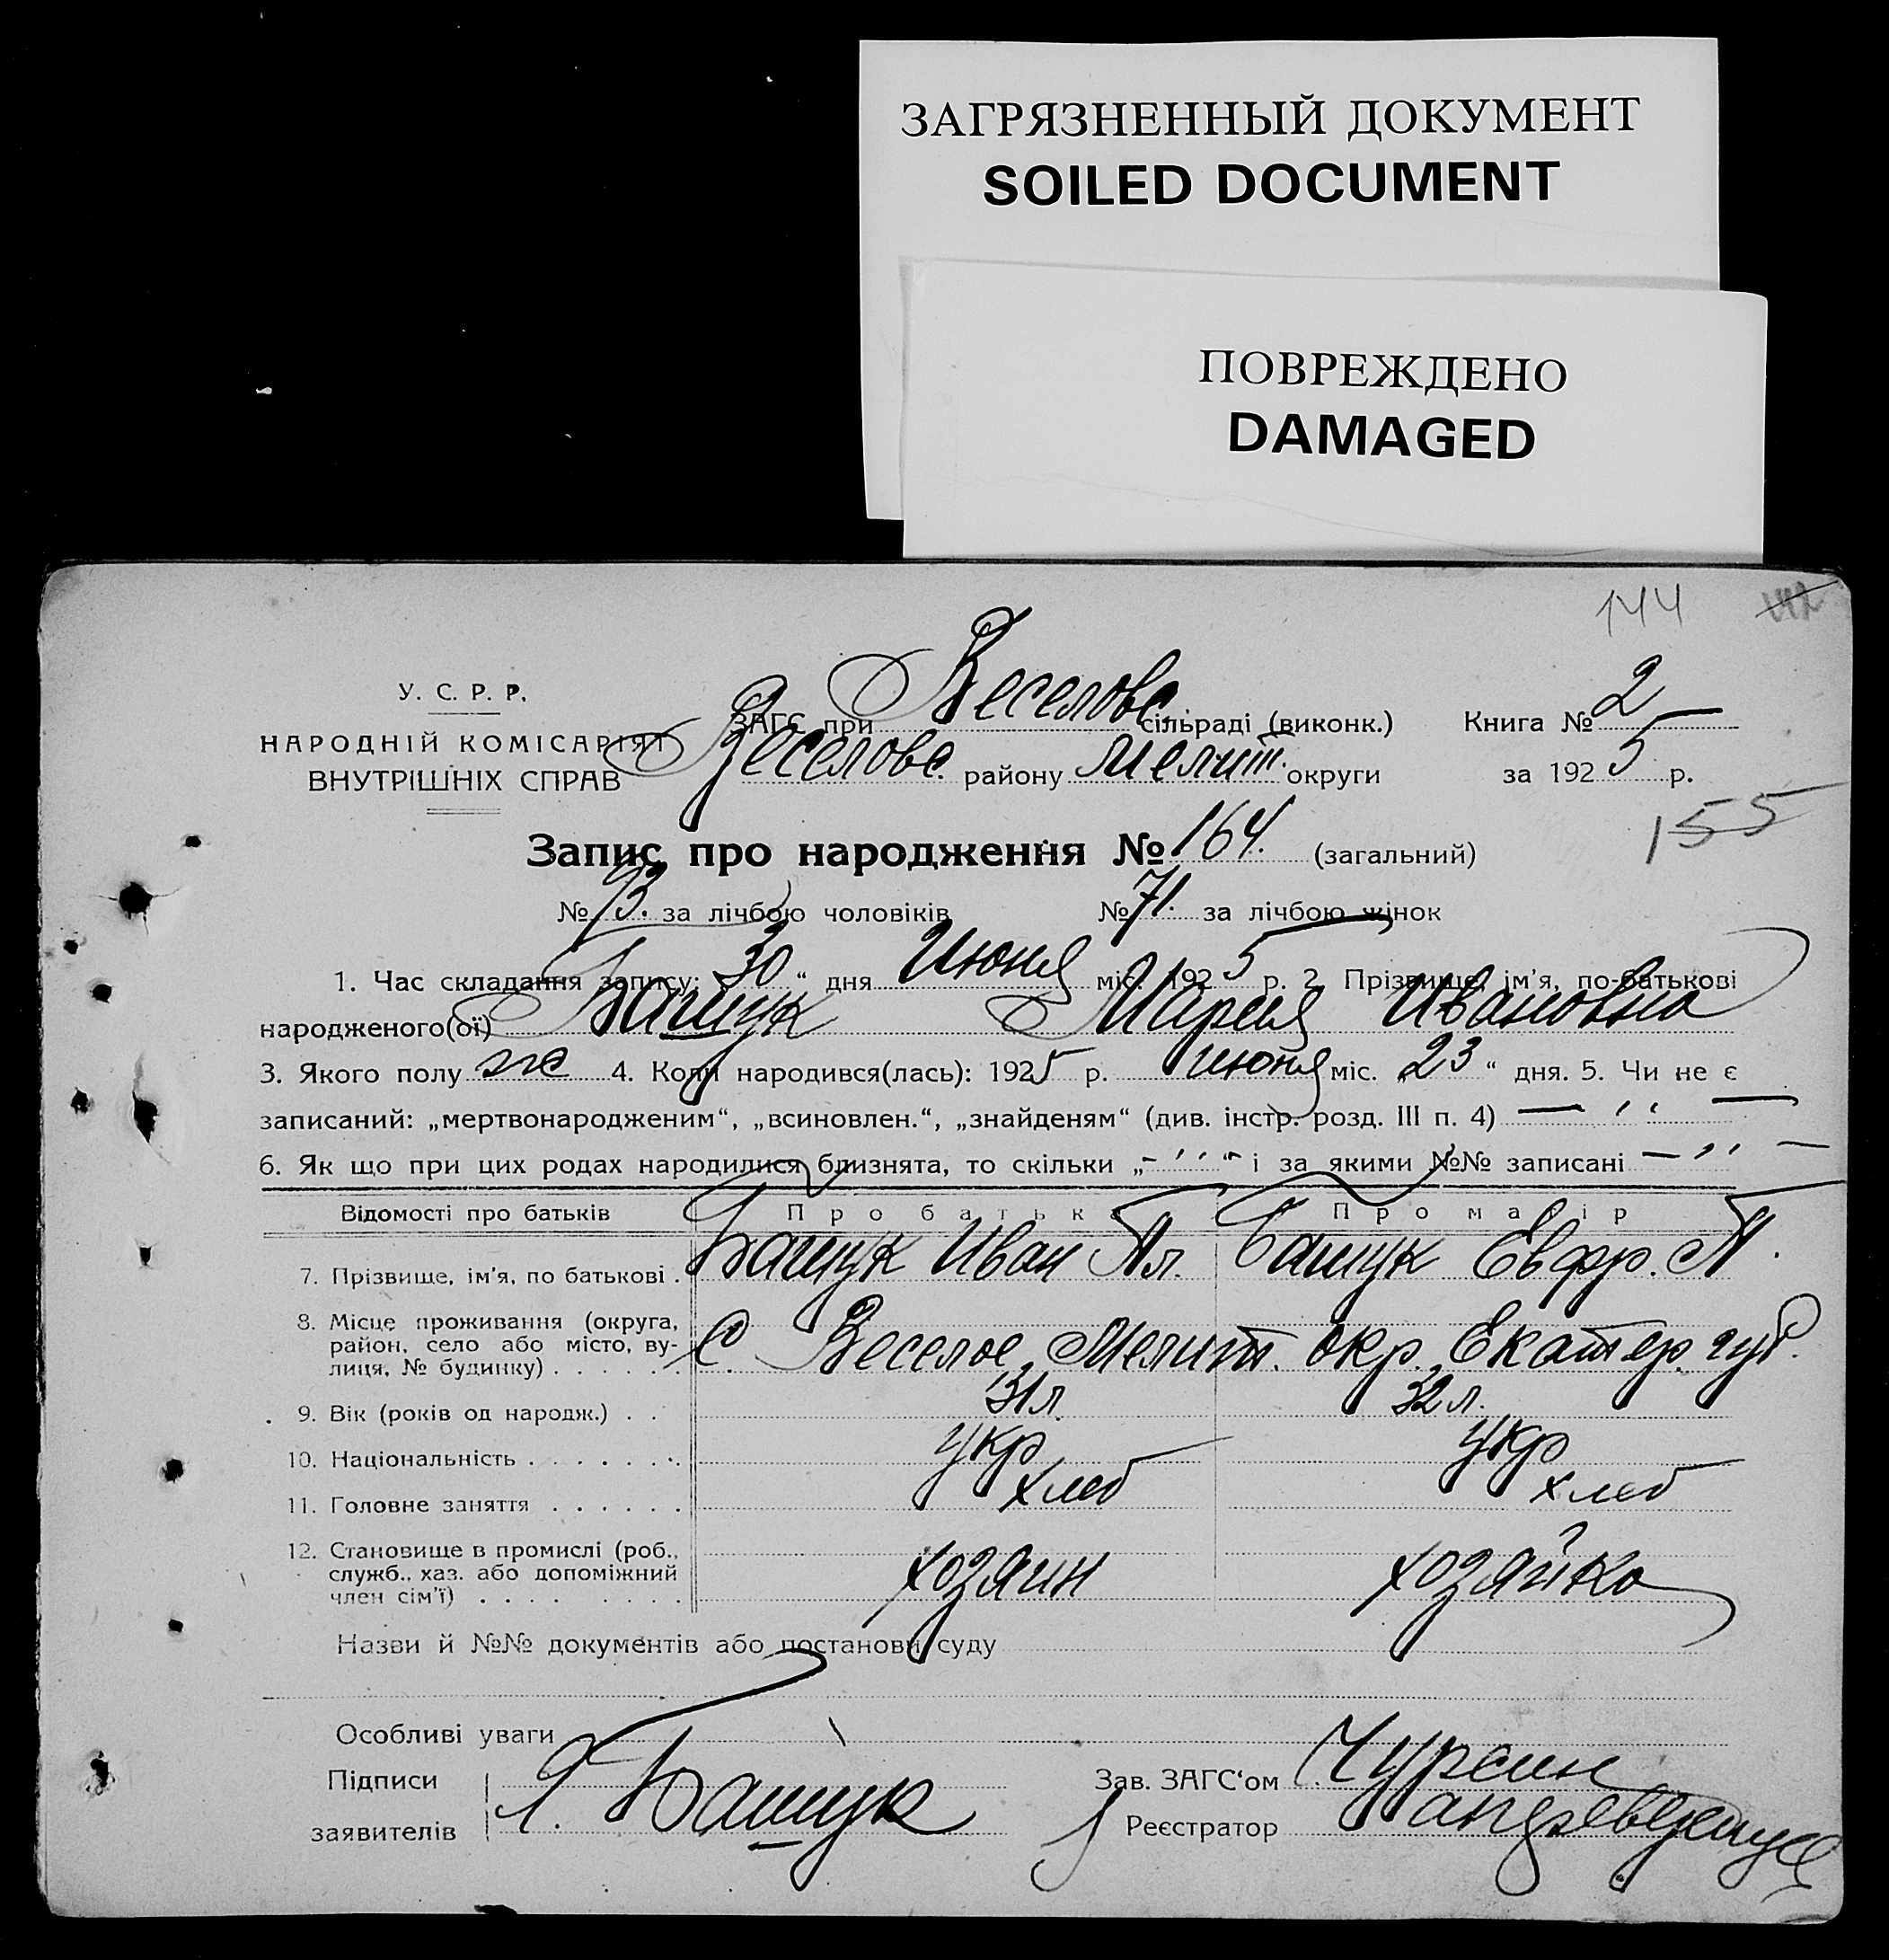 ЗАГРЯЗНЕННЫЙ ДОКУМЕНТ
SOILED DOCUMENT
ПОВРЕЖДЕНО
DAMAGED
144
У. С. Р. Р.
НАРОДНІЙ КОМІСАРІЯТ
ВНУТРІШНІХ СПРАВ
ЗАГС при Веселовс. сільраді (виконк.) Книга № 2
Веселовс. району Мелит. округи за 1925 р.
155
Запис про народження № 164. (загальний)
№ 93. за лічбою чоловіків № 71. за лічбою жінок
1. Час складання запису: „30“ дня Июня міс. 1925 р. 2. Прізвище, ім'я, по-батькові
народженого(ої) Башук Мария Ивановна
3. Якого полу ж 4. Коли народився(лась): 1925 р. июня міс. „23“ дня. 5. Чи не є
записаний: „мертвонародженим“, „всиновлен.“, „знайденям“ (див. інстр. розд. III п. 4) — ,, —
6. Як що при цих родах народилися близнята, то скільки „- ,, -“ і за якими №№ записані — ,, —
Відомості про батьків Про батька Про матір
7. Прізвище, ім'я, по батькові . Башук Иван Пл. Башук Евфр. П.
8. Місце проживання (округа,
район, село або місто, ву-
лиця, № будинку) . . . . . . С. Веселое, Мелит. окр. Екатер. губ.
9. Вік (років од народж.) . . 31 л. 32 л.
10. Національність . . . . . . . укр укр
11. Головне заняття . . . . . . хлеб хлеб
12. Становище в промислі (роб.,
служб., хаз. або допоміжний
член сім'ї) . . . . . . . . хозяин хозяйка
Назви й №№ документів або постанови суду
Особливі уваги
Підписи
заявителів Башук
Зав. ЗАГС'ом Чурсин
Реєстратор